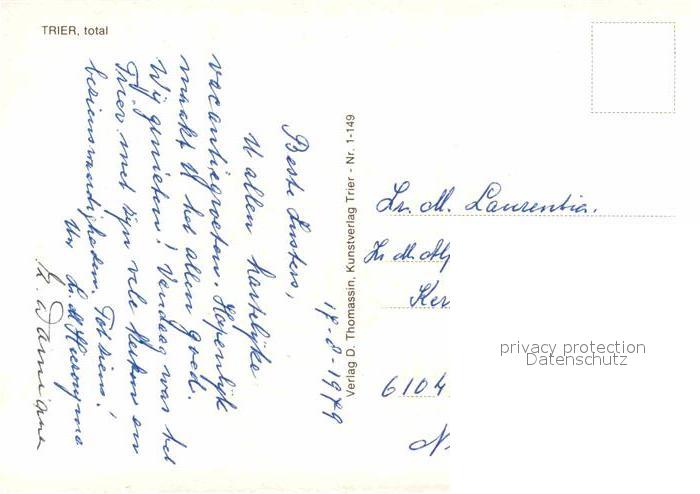 TRIER, total
17-8-1979
Beste Zusters,
U allen hartelijke
vacantiegroeten. Hopenlijk
maakt U het allen goed.
Wij genieten! Vandaag was het
Trier met zijn vele kerken en
bezienswaardigheden. Tot ziens!
Zr. M. Hieronyma
Zr. Damiane
Verlag D. Thomassin, Kunstverlag Trier - Nr. 1-149
Zr. M. Laurentia.
Zr M.
Ker
6104
N
privacy protection
Datenschutz